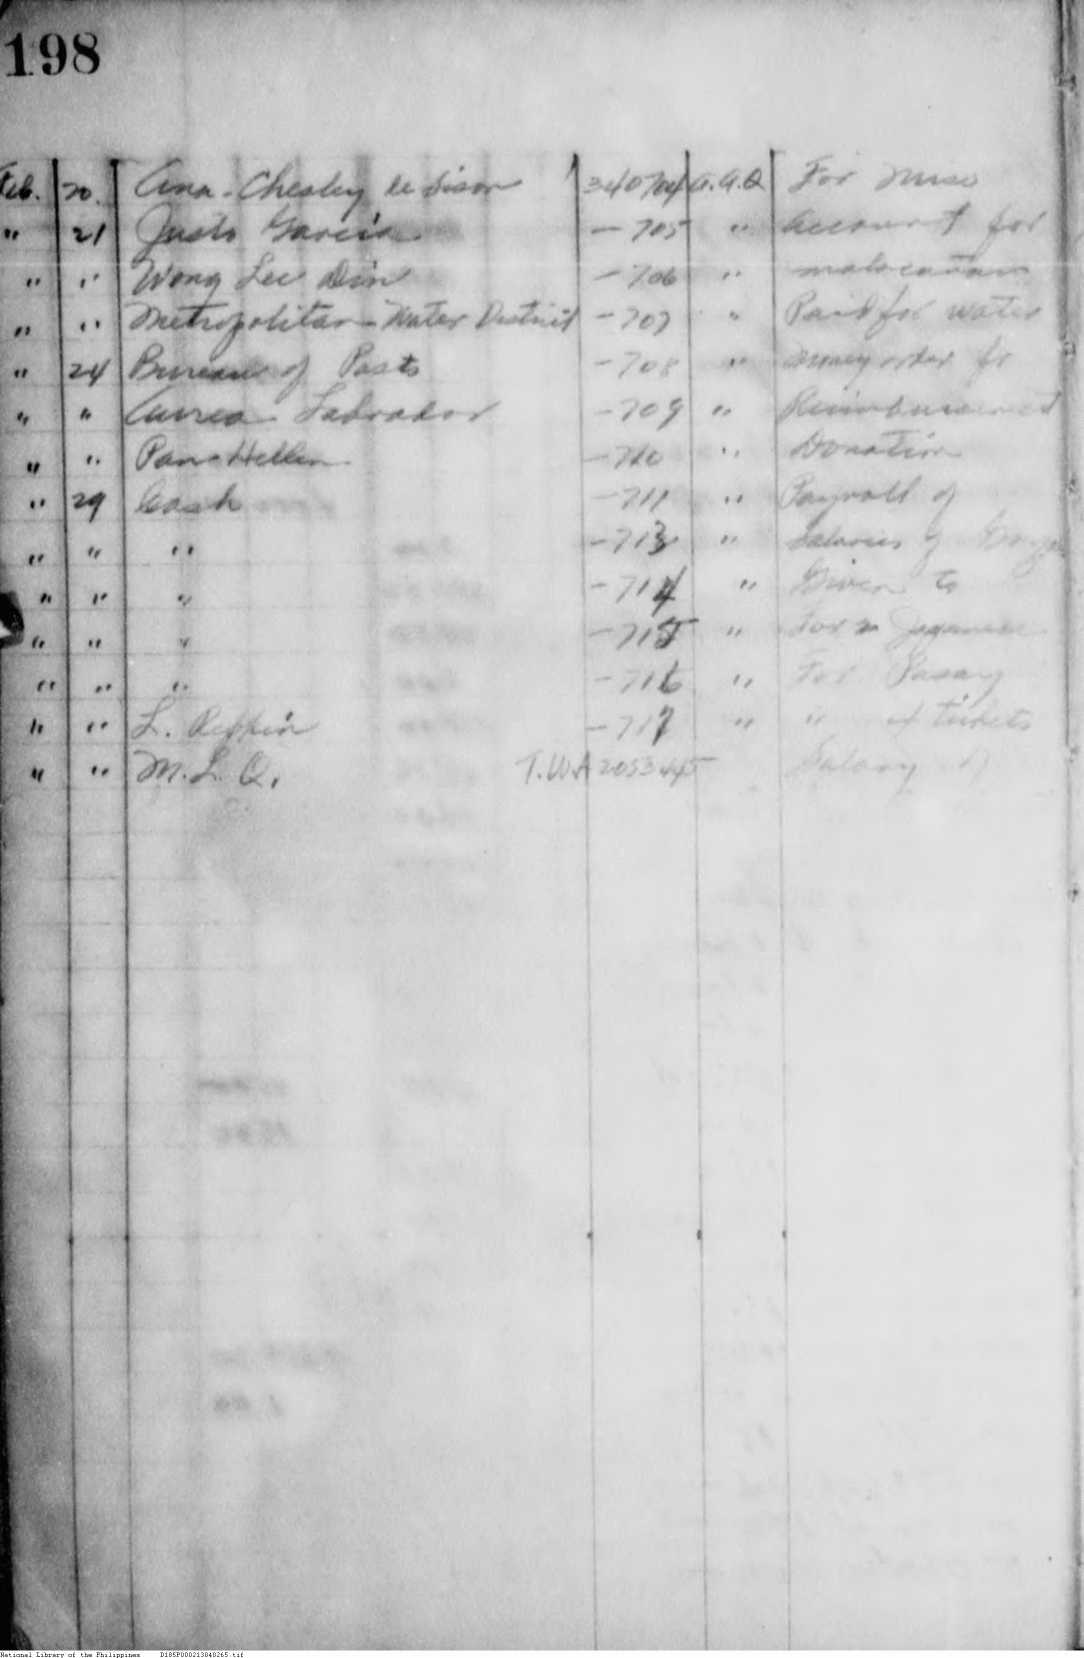 198
Feb. 20. Ana Chesley de Sison 340704 A.A.Q For Miss
" 21 Justo Garcia - 705 " account for
" " Wong Lee Din - 706 "
" " Metropolitan Water District - 707 " Paid for water
" 24 Bureau of Posts - 708 " money order for
" " Aurea Labrador - 709 " Reimbursement
" " Pan-Hellen - 710 " Donation
" 29 Cash - 711 " Payroll of
" " " - 713 " Salaries of
" " " - 714 " Given to
" " " - 715 " For Japanese
" " " - 716 " For Pasay
" " L. - 717 " " of tickets
" " M.L.Q. T.W.A 205344 Salary of
National Library of the Philippines D185P000213840265.tif